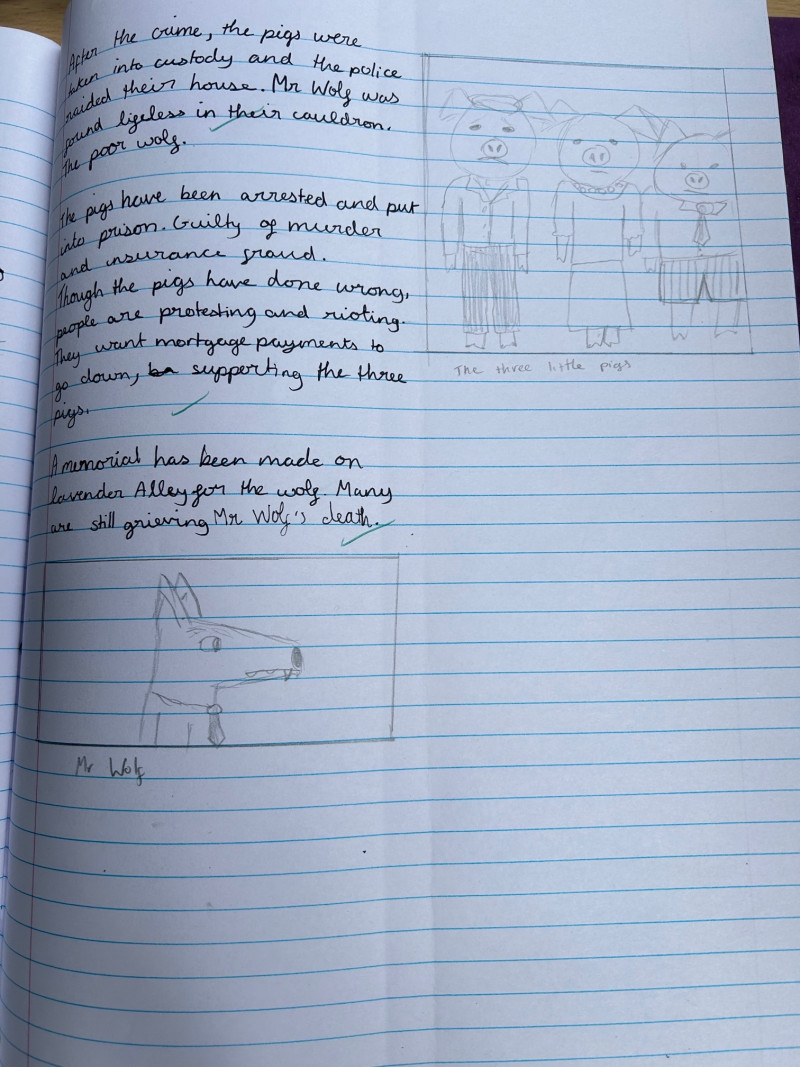 After the crime, the pigs were
taken into custody and the police
raided their house. Mr Wolf was
found lifeless in their cauldron.
The poor wolf.
The pigs have been arrested and put
into prison. Guilty of murder
and insurance fraud.
Though the pigs have done wrong,
people are protesting and rioting.
They want mortgage payments to
go down, supporting the three
pigs.
A memorial has been made on
lavender Alley for the wolf. Many
are still grieving Mr Wolf's death.
Mr Wolf
The three little pigs